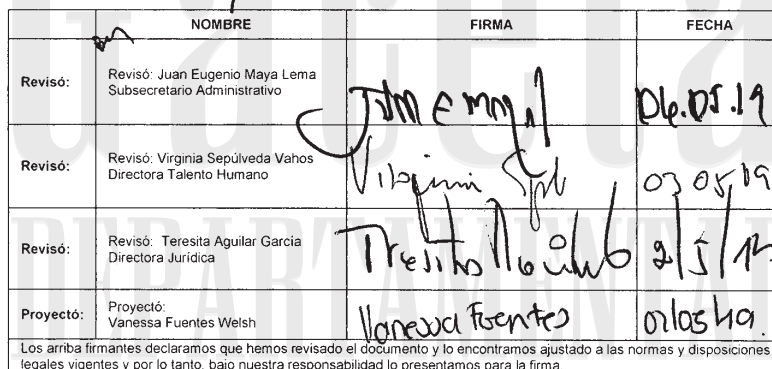 Gaceta
DEPARTAMENTAL
NOMBRE FIRMA FECHA
Revisó: Revisó: Juan Eugenio Maya Lema
Subsecretario Administrativo 06.05.19
Revisó: Revisó: Virginia Sepúlveda Vahos
Directora Talento Humano Virginia 03 05/19
Revisó: Revisó: Teresita Aguilar Garcia
Directora Jurídica Teresita 2/5/19
Proyectó: Proyectó:
Vanessa Fuentes Welsh Vanessa Fuentes 02/05/19.
Los arriba firmantes declaramos que hemos revisado el documento y lo encontramos ajustado a las normas y disposiciones
legales vigentes y por lo tanto, bajo nuestra responsabilidad lo presentamos para la firma.